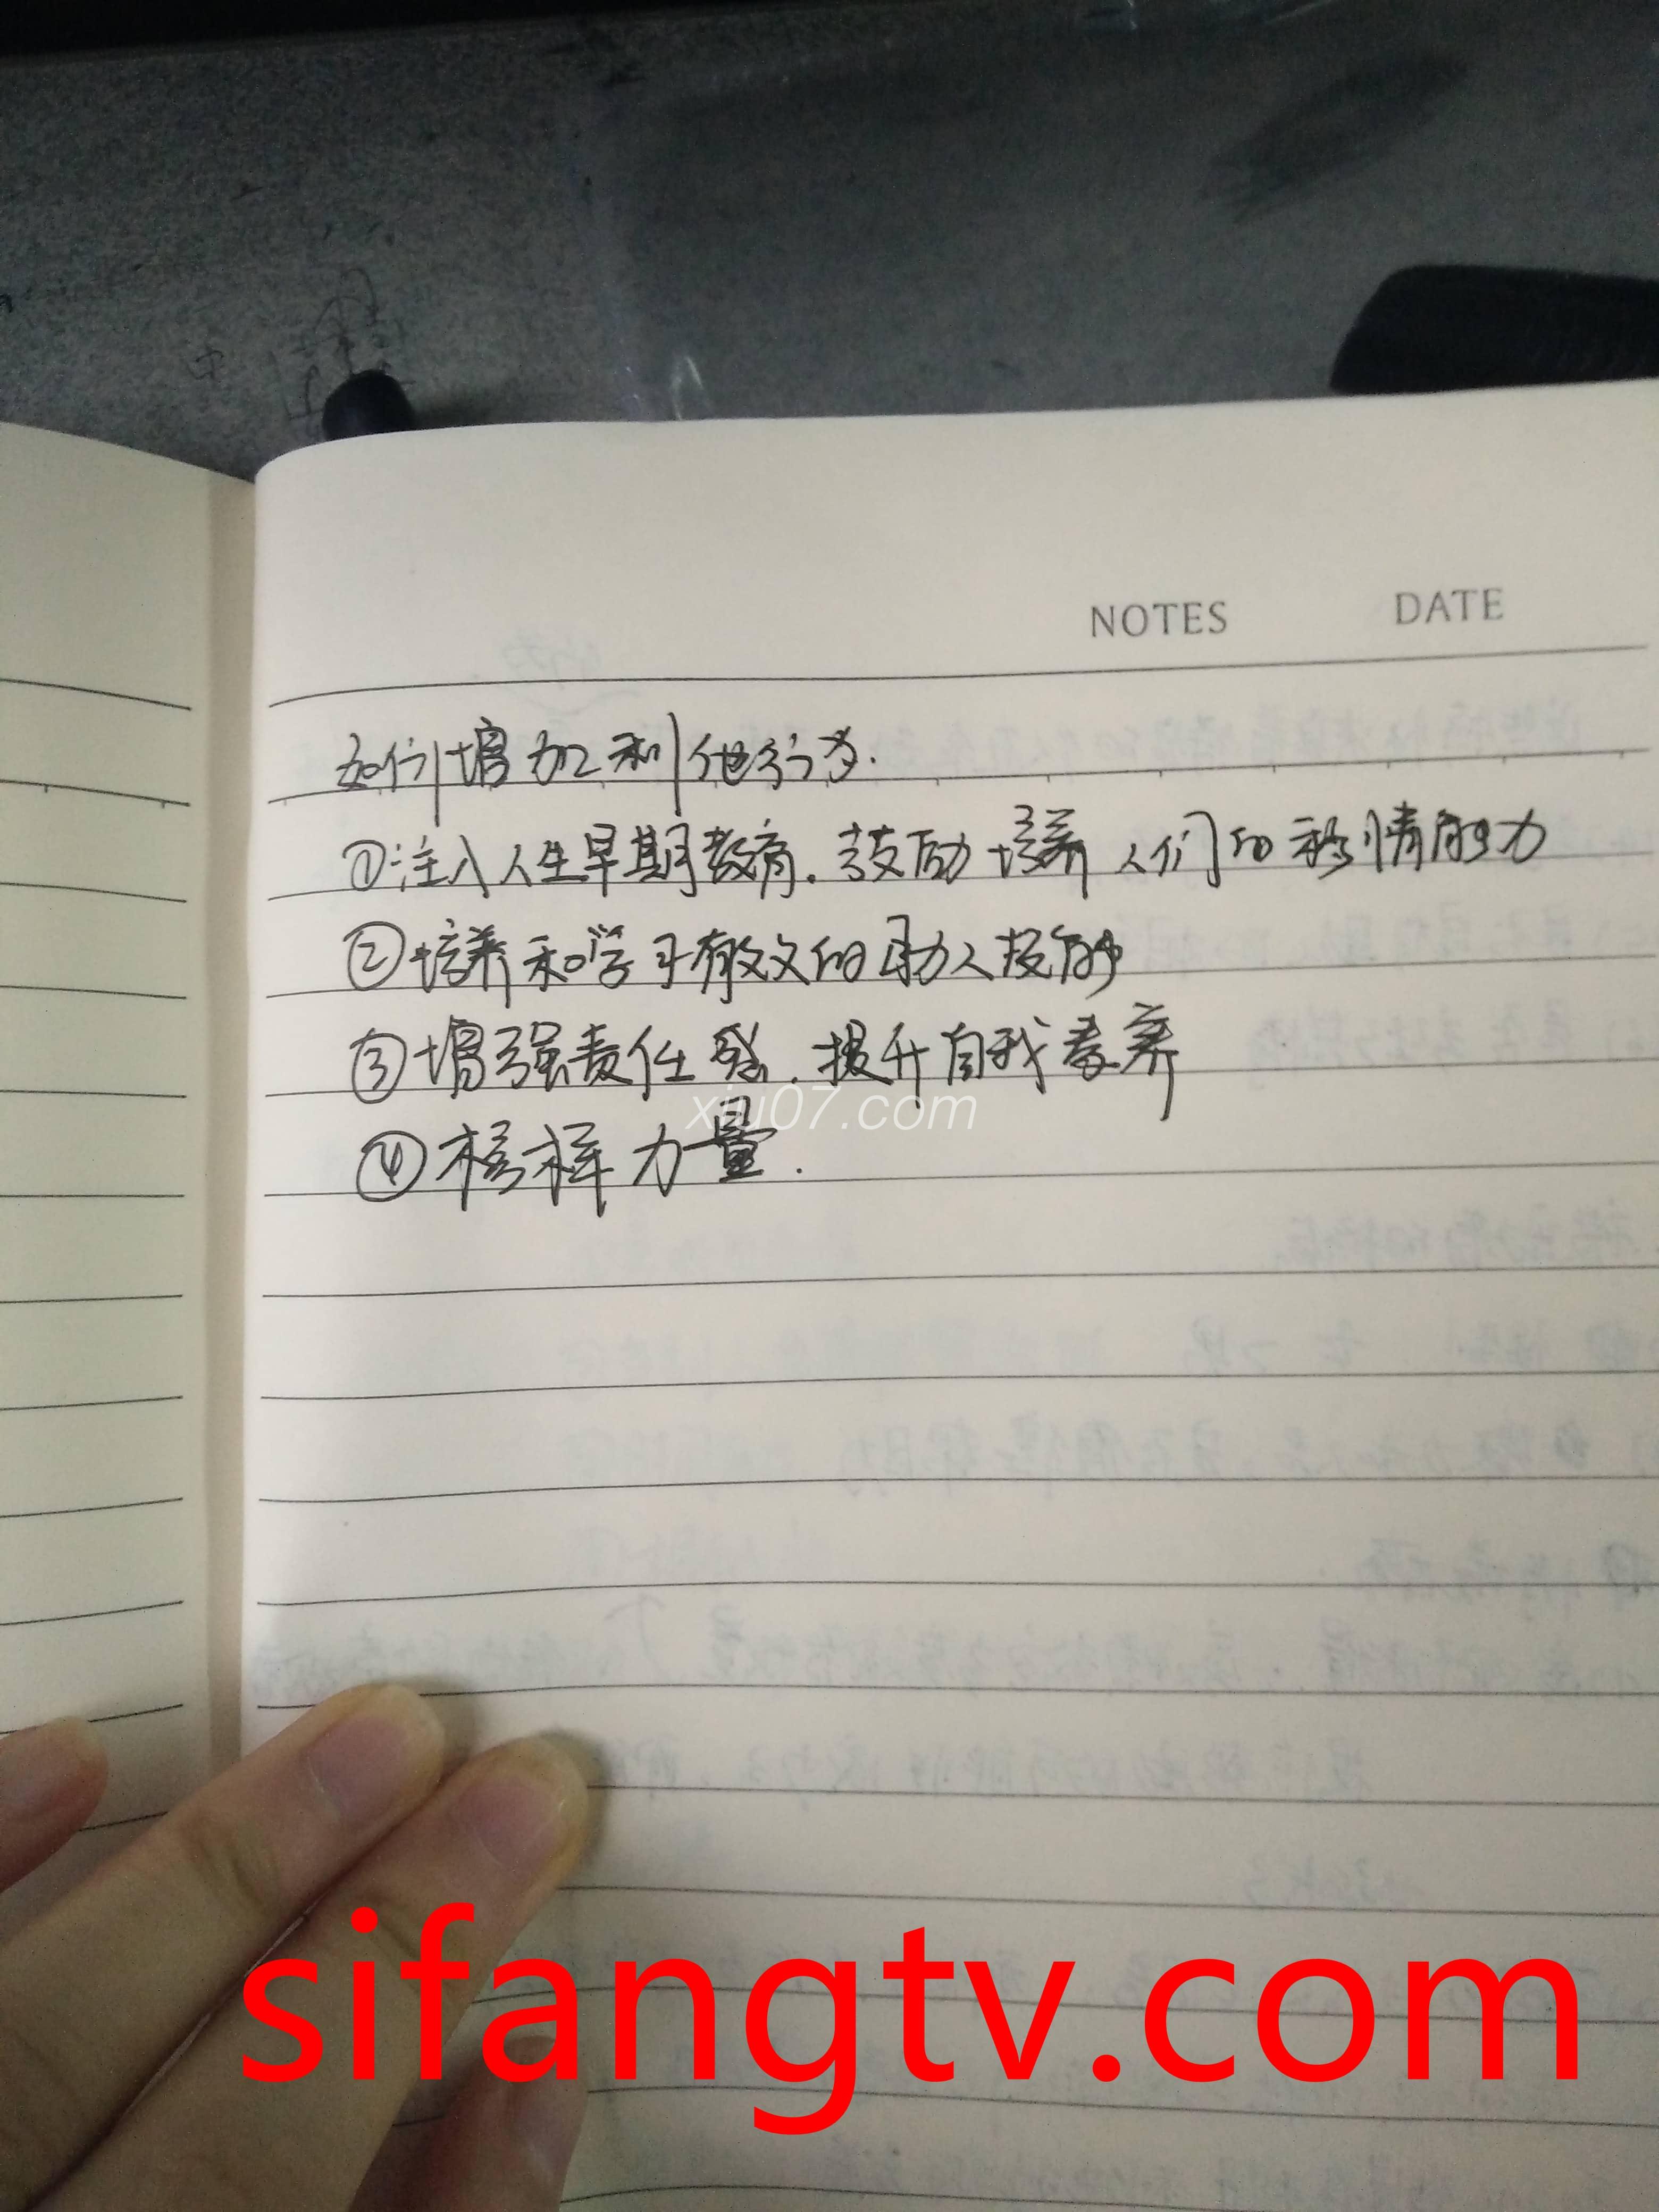 NOTES DATE
如何增加利他行为.
①注入人生早期教育.鼓励培养人们的移情能力
②培养和学习有效的助人技能
③增强责任感.提升自我素养
xiu07.com
④榜样力量.
sifangtv.com